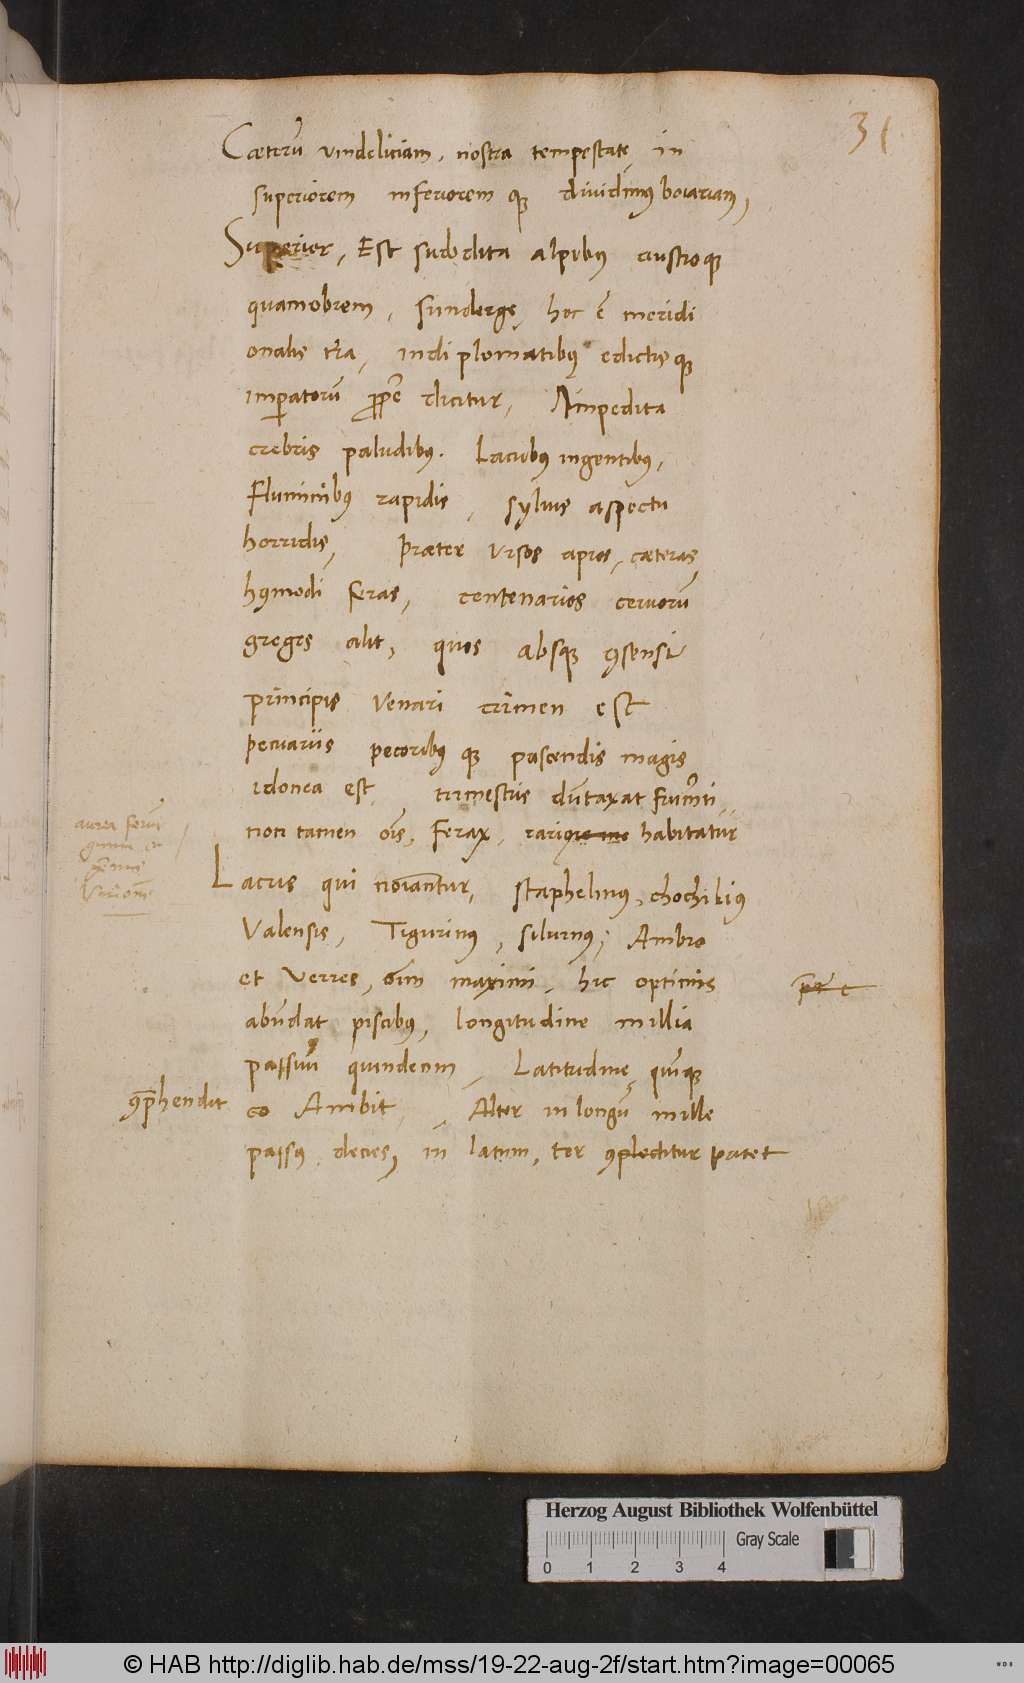 31
Cæterũ vindeliciam, nostra tempestate, in
superiorem inferiorem que dividimus boiariam,
Superior, Est subdita alpibus austroque
quamobrem, sunderge, hoc ẽ meridi
onalis tr̃a, in diplomatibus edictisque
imperatorũ propriẽ dicitur, Impedita
crebris paludibus. Lacubus ingentibus,
Fluminibus rapidis, sylvis aspectu
horridis, Præter Ursos apros, cæteras,
hujusmodi feras, centenarios cervorũ
greges alit, quos absque cõsensu
principis venari crimen est
pecuariis pecoribus que pascendis magis
idonea est, trimestris dũtaxat frumẽti,
non tamen ois, Ferax, rarius habitatur
aurea ferun
Lacus qui noĩantur, staphelinus, chochilius
Valensis, Tigurinus, silurnus, Ambro
et verres, oĩm maximi, hic optimis
abũdat piscibus, longitudine millia
passuũ quindecim, Latitudine, quinque
cõprehendit
co Ambit, Alter in longũ mille
passus decies, in latum, ter cõplectitur patet
Herzog August Bibliothek Wolfenbüttel
Gray Scale
0 1 2 3 4
© HAB http://diglib.hab.de/mss/19-22-aug-2f/start.htm?image=00065